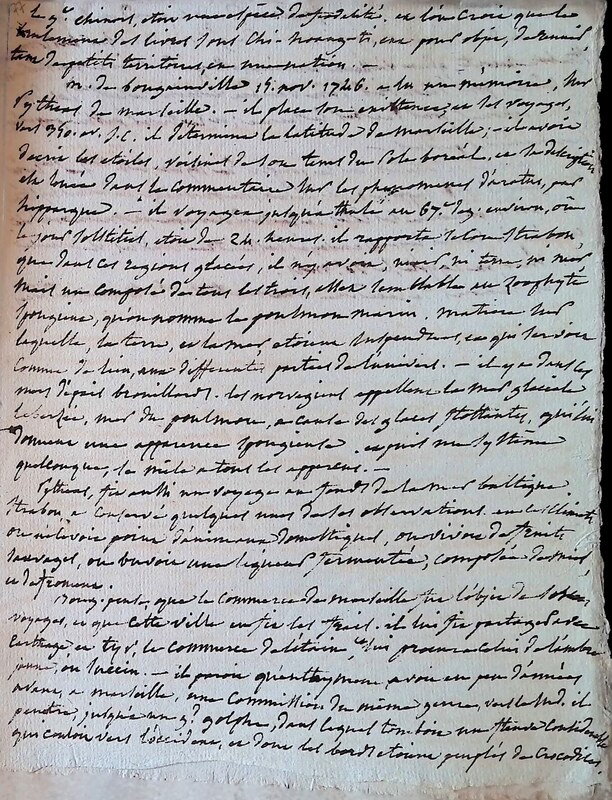 le gd. chinois, etoit une espece de fidelité. et l'on croit que le
des livres sous Chi-hoangti, eut pour objet, de reunir,
tant de petits territoires, en une nation. —
m. de bougainville 15. nov. 1746. a lu un mémoire, sur
Pytheas de marseille. — il place son existence, et ses voyages,
vers 340. av. J.C. il détermina la latitude de marseille; — il avoit
decrit les etoiles, voisines de son tems du Pole boréal, et sa description
est louée dans le commentaire sur les phenomenes d'aratus, par
hipparque. — il voyagea jusqu'a thulé au 67e. deg. environ, où
le jour solstitial, etoit de 24. heures. il rapporta selon Strabon,
que dans ces regions glacées, il n'y avoit, ni air, ni terre, ni mer
mais un composé de tous les trois, assez semblable au Zoophyte
spongieux, qu'on nomme le poulmon marin. matiere sur
laquelle, la terre, et la mer etoient suspendues, et qui servoit
comme de lien, aux differentes parties de l'univers. — il y a dans ces
mers d'épais brouillards. les norvegiens appellent la mer glaciale
mer du poulmon, a cause des glaces flottantes, qui lui
donnent une apparence spongieuse. esprit de systeme
quelconque, se mêle a tous les apperçus. —
Pytheas, fit aussi un voyage au fonds de la mer baltique
Strabon a conservé quelques unes de ses observations. en ces climats
on n'elevoit point d'animaux domestiques, on vivoit de fruits
sauvages, on buvoit une liqueur fermentée, composée de miel,
et de froment.
Boug. pense, que le commerce de marseille fut l'objet de
voyages, et que cette ville en fit les frais. il lui fit partager avec
Carthage, et tyr, le commerce de l'étain, et lui procura celui de l'ambre
jaune, ou succin. — il paroit qu'euthymene avoit eu peu d'années
avant, a marseille, une commission du même genre, vers le sud. il
penetra jusqu'a un gd. golphe, dans lequel tomboit un fleuve considerable
qui couloit vers l'occident, et dont les bords etoient peuplés de crocodiles.